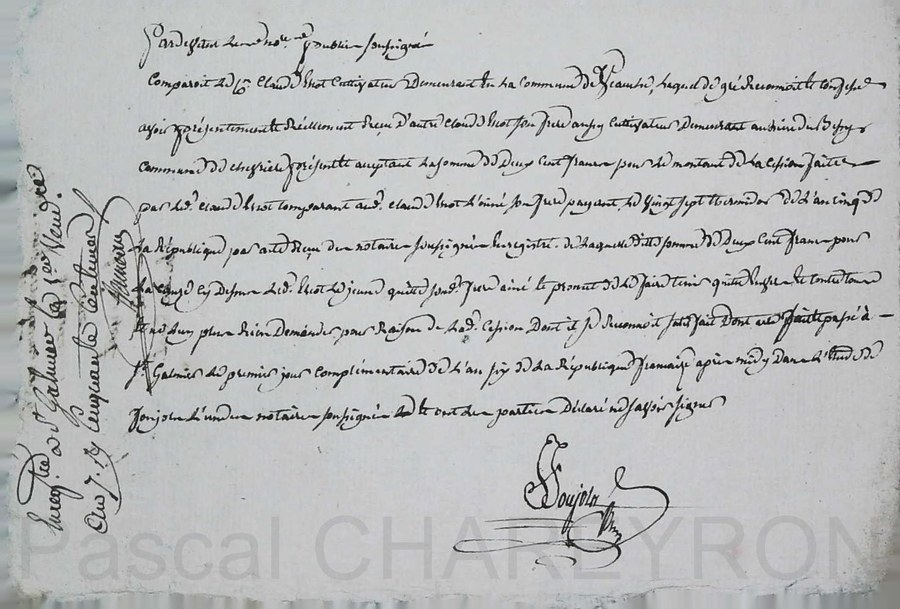 Pardevant le not.re public soussigné
Comparoit le C. Claude Viot Cultivateur Demeurant en la Commune de , lequel de gré Reconnoit et Confesse
avoir présentement et Réellement Reçu D'autre Claude Viot son frere aussy Cultivateur Demeurant au
Commune de Chevriere présent et acceptant la somme de Deux Cent francs pour le montant de la Cession faite
par led. Claude Viot Comparant aud. Claude Viot L'ainé son frere par acte du Vingt sept thermidor de L'an Cinq de
la République par acte Reçu du notaire soussigné Enregistré. de laquelle ditte somme de Deux Cent francs pour
la Cause Cy Dessus led. Viot le jeune quitte sond. frere ainé et promet de le faire tenir quitte Envers et Contre tous
et ne Rien plus Demander pour Raison de lad. Cession Dont il se Reconnoit satisfait Dont acte fait et passé à
St Galmier le premier jour Complémentaire de L'an six de la République française après midy Dans L'étude de
Ponjola L'un des notaire soussigné et ont les parties Déclaré ne savoir signer
Ponjola
Enreg.tré a St Galmier le 1er Vend.re
an 7. R/ Cinquante Centimes
Pascal CHAREYRON